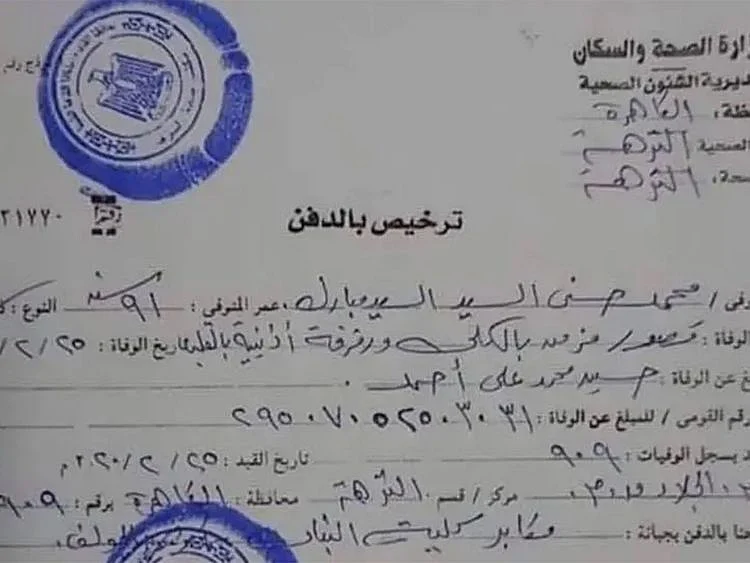 وزارة الصحة والسكان
مديرية الشئون الصحية
محافظة: القاهرة
الصحية النزهة
صحة: النزهة
نموذج رقم
٢١٧٧٠
ترخيص بالدفن
المتوفى / محمد حسنى السيد السيد مبارك عمر المتوفى: ٩١ سنة النوع:
الوفاة: قصور مزمن بالكلى ورفرفة أذينية بالقلب تاريخ الوفاة: ٢٥/٢/
المبلغ عن الوفاة: حسيد محمد على أحمد.
رقم القومى / للمبلغ عن الوفاة: ٢٩٥٠٧٠٥٢٥٠٣٠٣١
قيد بسجل الوفيات: ٩٠٩ تاريخ القيد: ٢٥/٢/٢٠٢٠م
مركز/قسم النزهة محافظة: القاهرة برقم: ٩٠٩
بالدفن بجبانة: مقابر كلية البنات